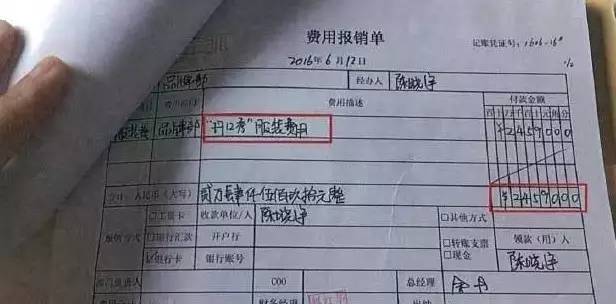 费用报销单
2016年6月12日
记账凭证号:
品牌部 经办人 陈晓宇
费用描述 付款金额
品牌部 口秀" 服装费用 ¥2459000
人民币(大写) 贰万肆仟伍佰玖拾元整 ¥2459000
□工资卡 收款单位/人 陈晓宇 □其他方式
报销方式 □银行汇款 开户行 □转账支票 领款(用)人
银行卡 银行账号 □现金 陈晓宇
部门负责人 COO 总经理
财务经理